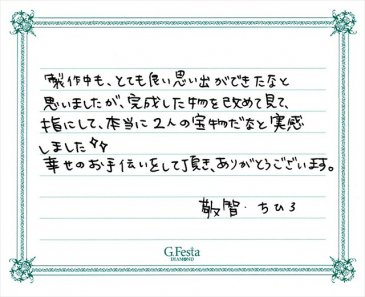 製作中も、とても良い思い出ができたなと
思いましたが、完成した物を改めて見て、
指にして、本当に2人の宝物だなと実感
しました✧✧
幸せのお手伝いをして頂き、ありがとうございます。
敬智・ちひろ
G.Festa
DIAMOND